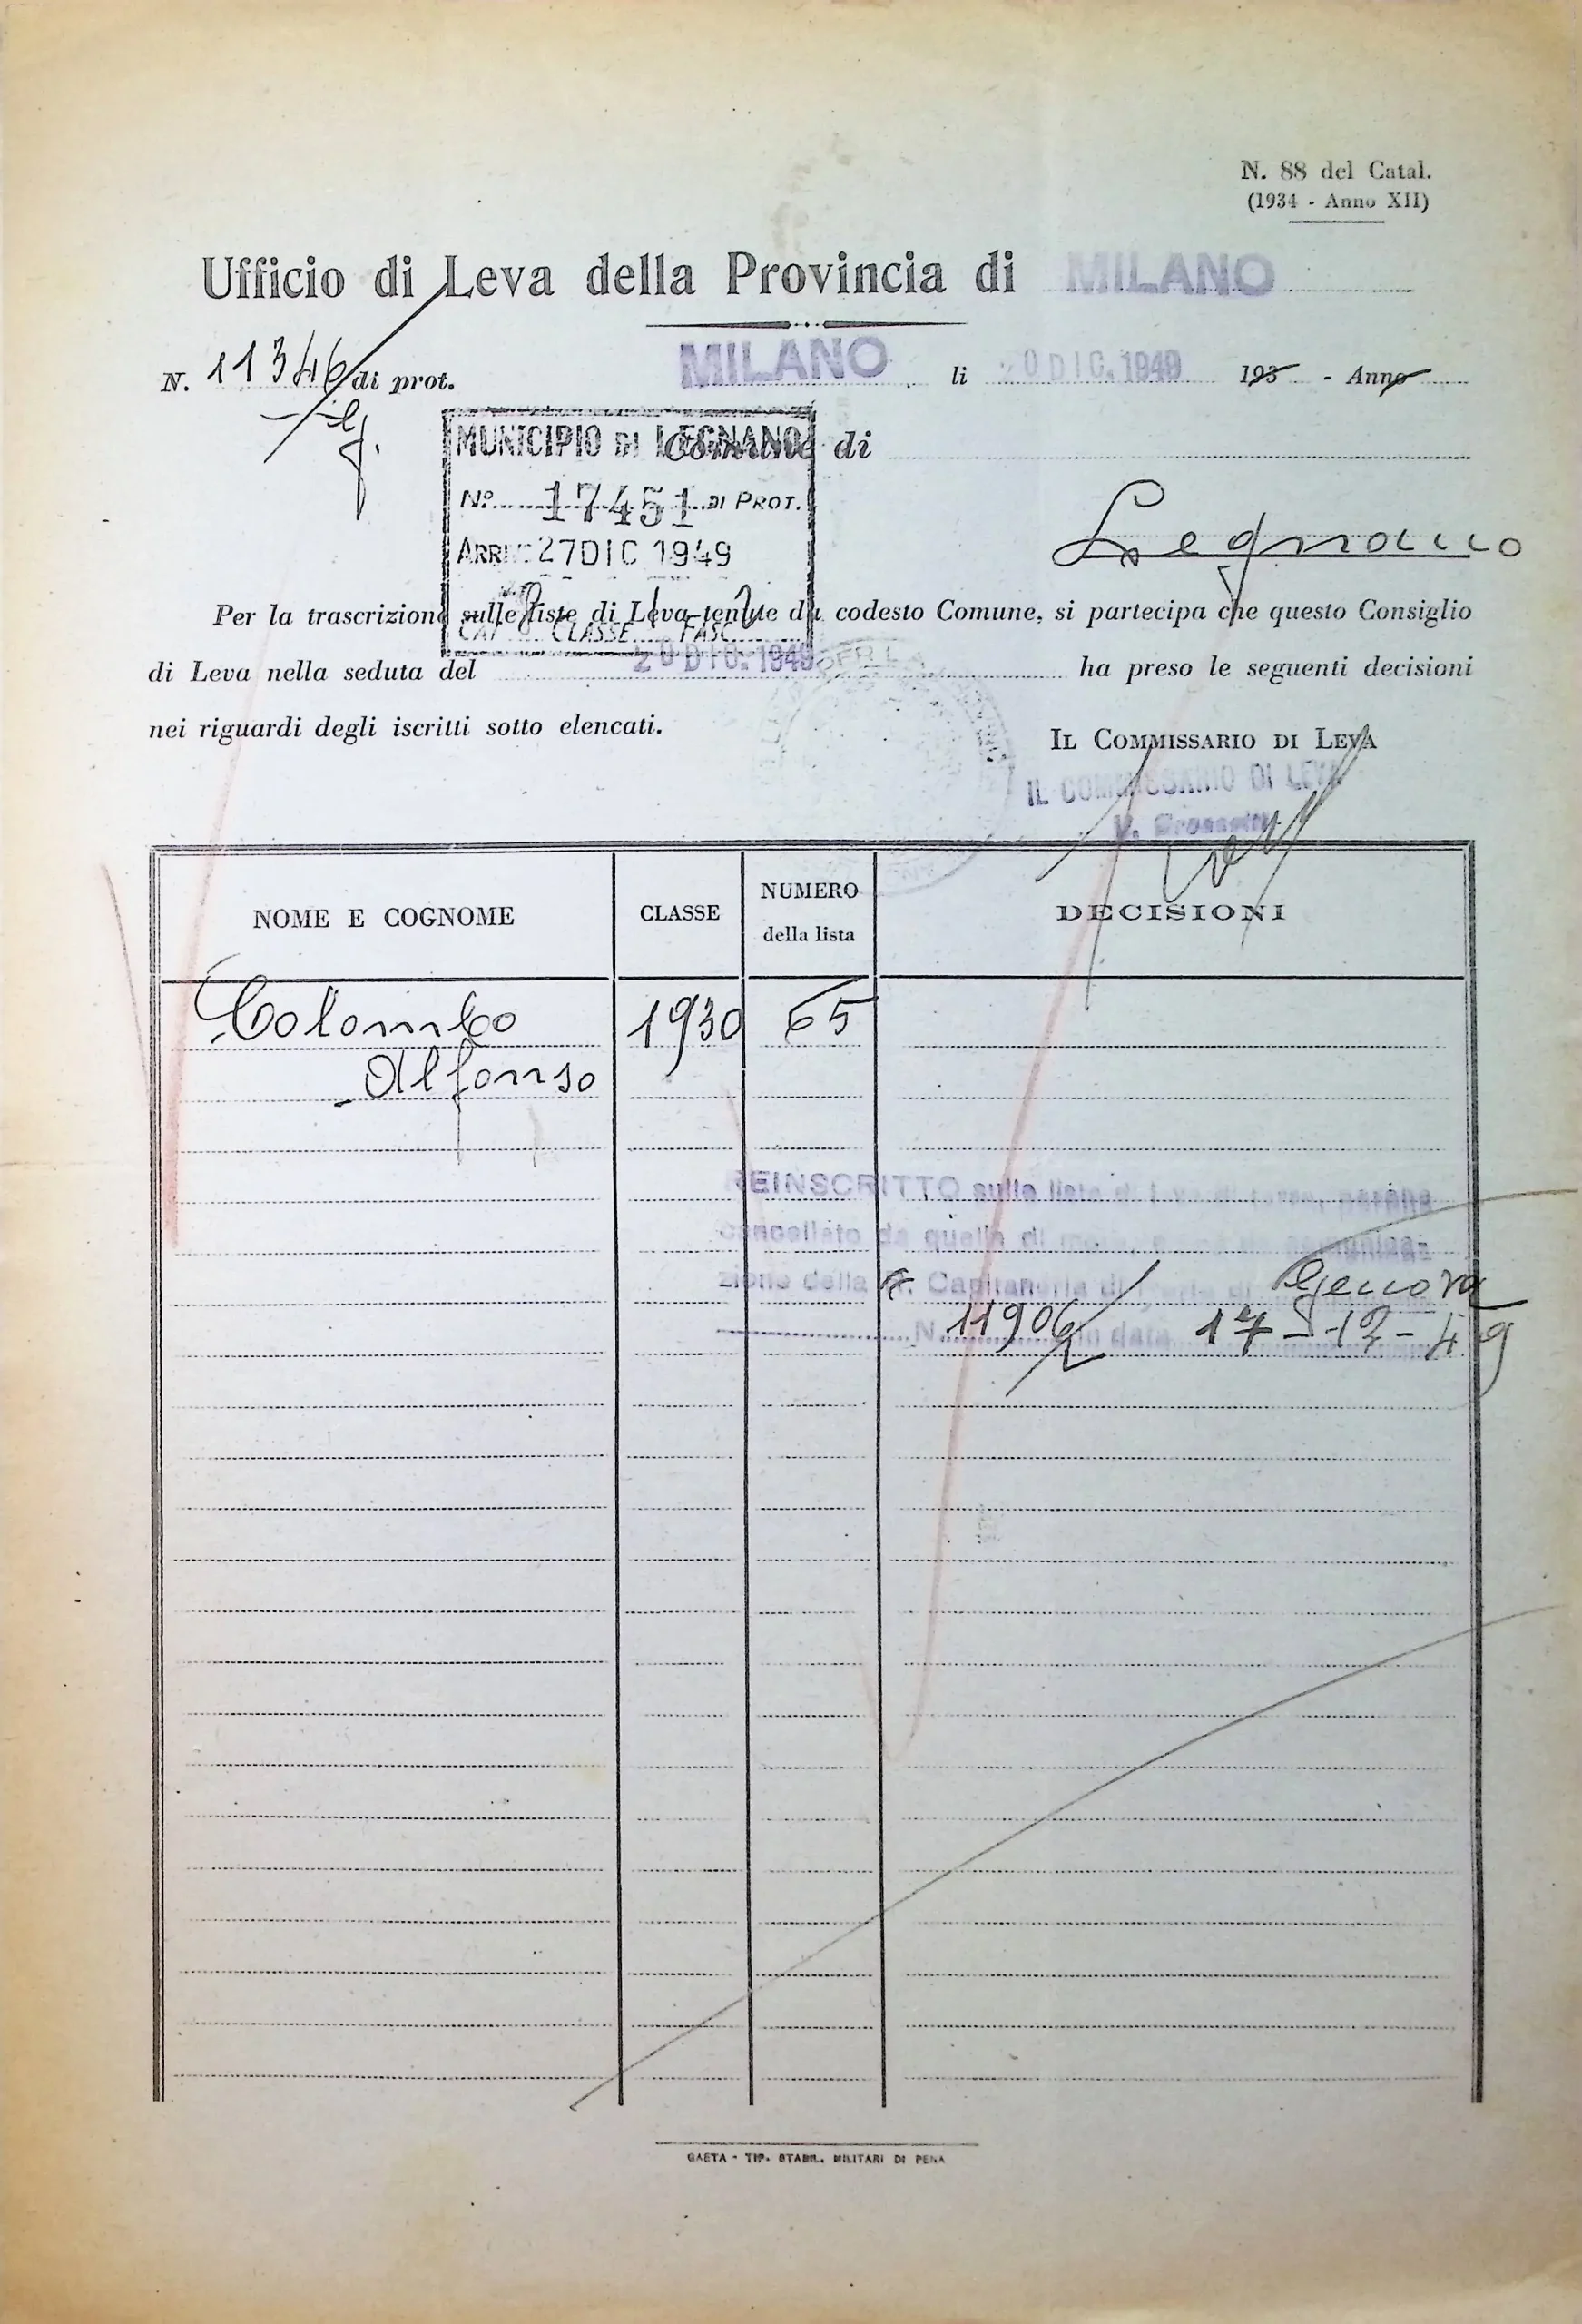 N. 88 del Catal.
(1934 - Anno XII)
Ufficio di Leva della Provincia di MILANO
N. 11346 di prot.
MILANO li 20 DIC. 1949 193 - Anno
MUNICIPIO DI LEGNANO
Comune di
N° 17451 DI PROT.
Legnano
ARRI 27 DIC 1949
CAT 8 CLASSE 1 FASC 2
Per la trascrizione sulle liste di Leva tenute da codesto Comune, si partecipa che questo Consiglio
di Leva nella seduta del 20 DIC. 1949 ha preso le seguenti decisioni
nei riguardi degli iscritti sotto elencati.
IL COMMISSARIO DI LEVA
IL COMMISSARIO DI LEVA
NOME E COGNOME CLASSE NUMERO della lista DECISIONI
Colombo 1930 65
Alfonso
REINSCRITTO sulla lista di leva di terra, perchè
cancellato da quella di mare, come da comunica-
zione della R. Capitaneria di Porto di Genova
N. 11906/2 in data 17-12-49
GAETA - TIP. STABIL. MILITARI DI PENA